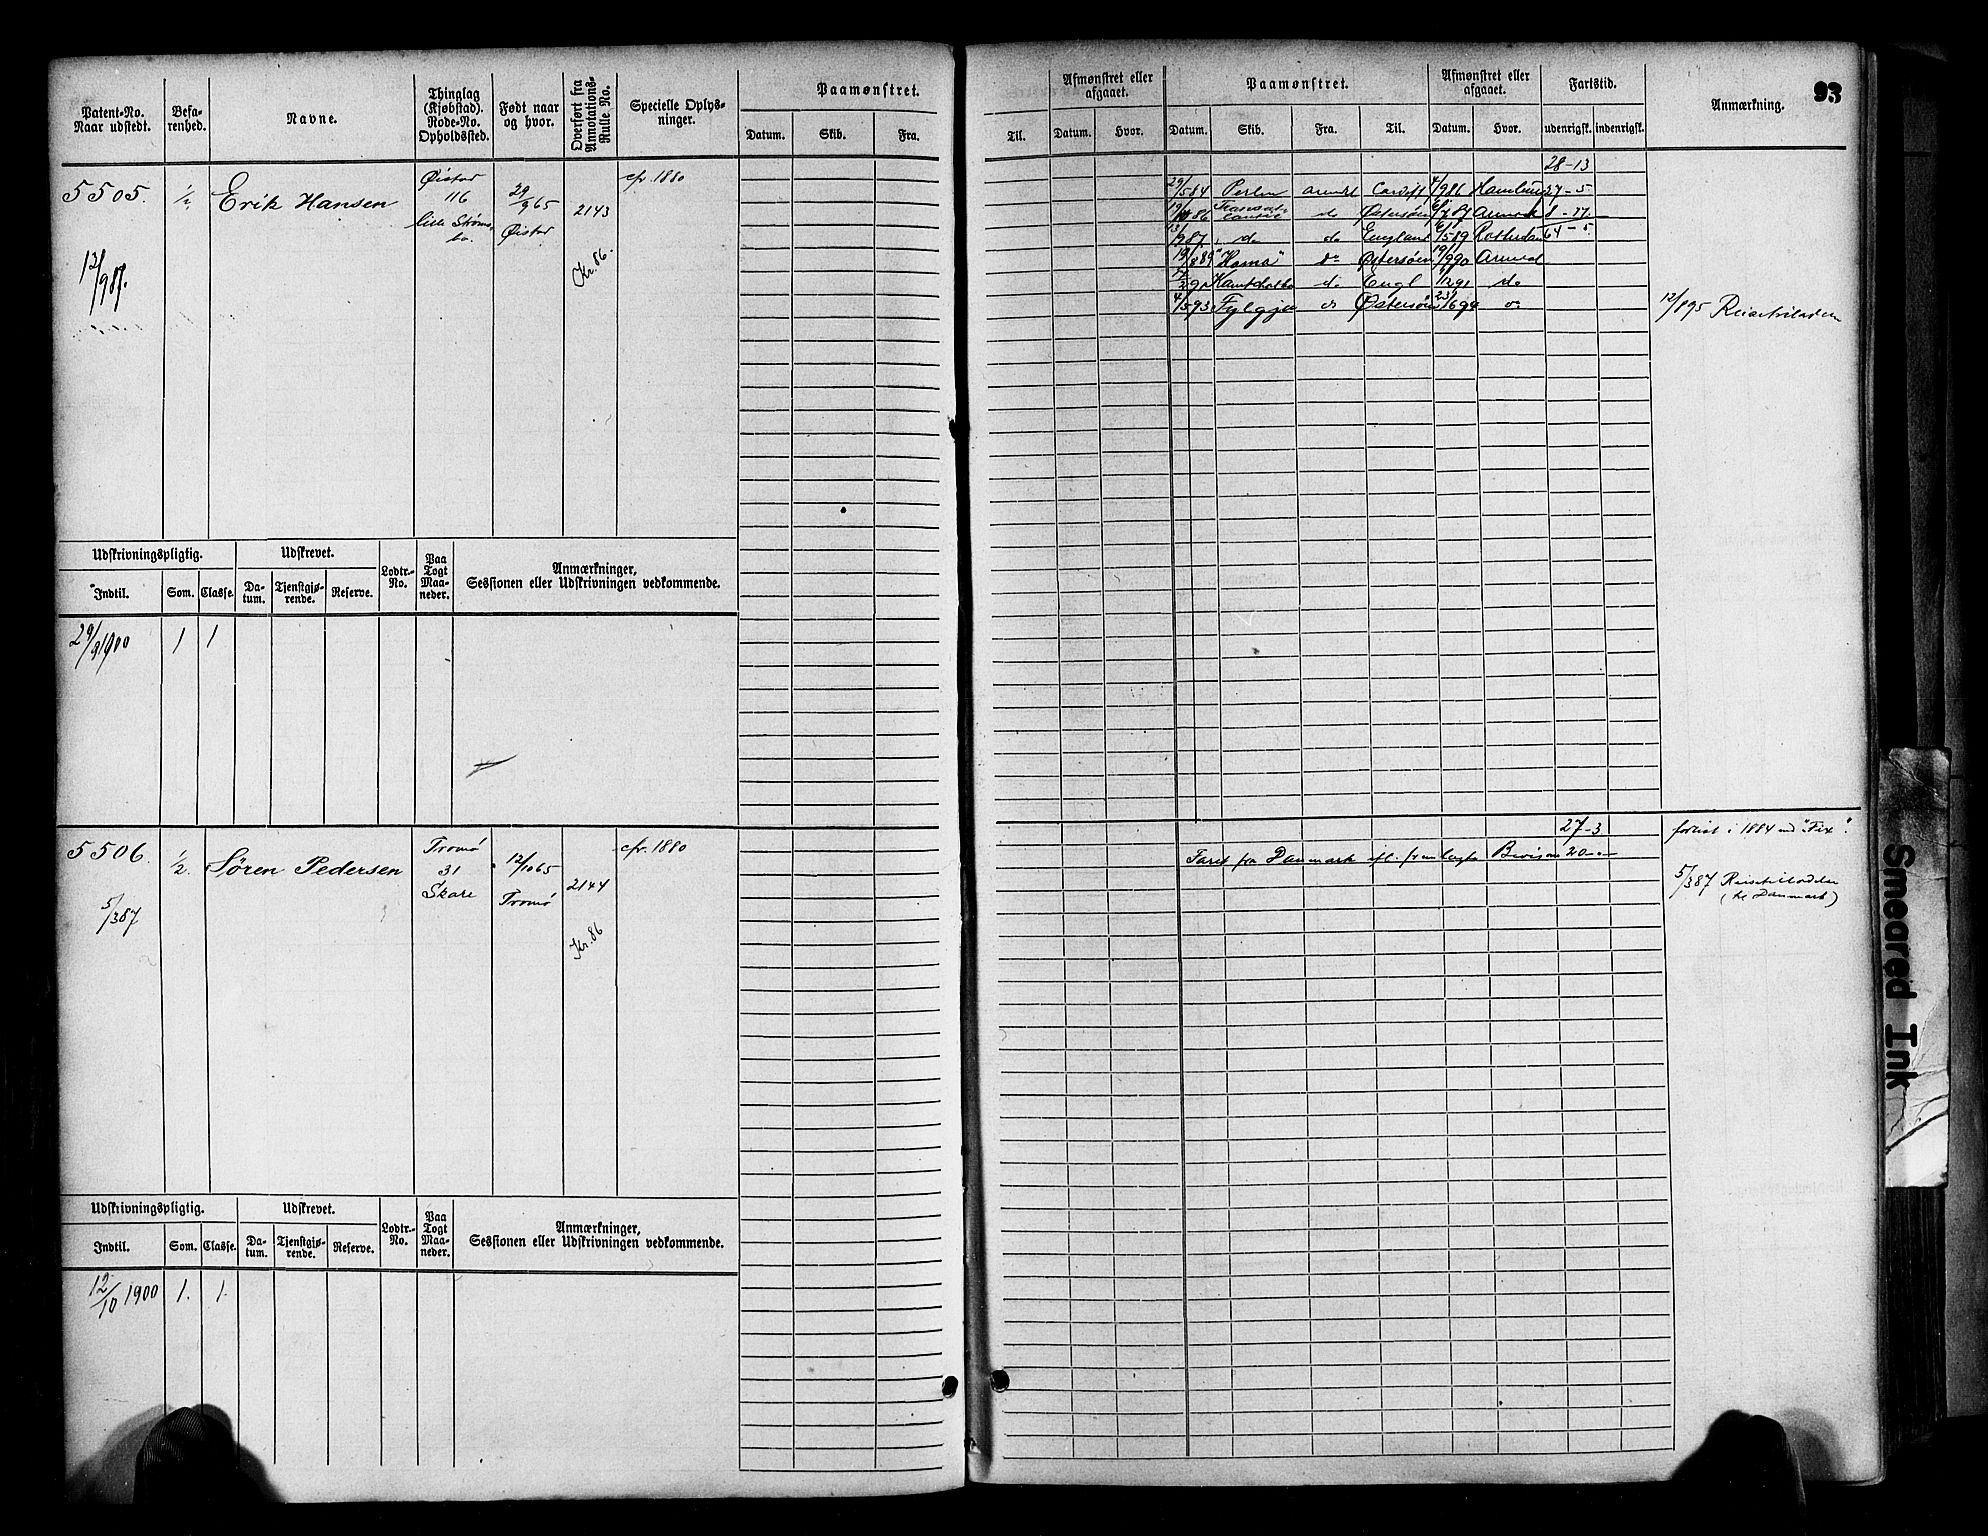 93
Patent-No.
Naar udstedt.
Befa-
renhed.
Navne.
Thinglag
(Kjøbstad).
Rode-No.
Opholdssted.
Født naar
og hvor.
Overført fra
Annotations-
Rulle. No.
Specielle Oplys-
ninger.
Paamønstret.
Datum. Skib. Fra.
Til.
Afmønstret eller
afgaaet.
Datum. Hvor.
Paamønstret.
Datum. Skib. Fra. Til.
Afmønstret eller
afgaaet.
Datum. Hvor.
Fartstid.
udenrigsk. indenrigsk.
Anmærkning.
5505.
12/9 87.
1/2
Erik Hansen
Øistad
116
Lille Strøms-
bo.
29/9 65
Øistad
2143
Kr. 86.
cfr. 1880
28-13
29/5 84 Perlen Arendal Cardiff 4/9 86 Hamburg 27-5
do Østersøen 8-17
13/9 87 do do England 6/5 89 Rotterdam 64-5
19/8 89 "Homa" do Østersøen 19/9 90 Arendal
do Engl do
4/5 93 Fylgja do Østersøen 23/6 94 do
12/8 95
Udskrivningspligtig.
Indtil. Som. Classe.
Udskrevet.
Da-
tum.
Tjenstgjø-
rende.
Reserve.
Lodtr.-
No.
Paa
Togt
Maa-
neder.
Anmærkninger,
Sessionen eller Udskrivningen vedkommende.
29/9 1900 1 1
5506.
5/3 87
1/2.
Søren Pedersen
Tromø
31
Skare
12/10 65
Tromø
2144
Kr. 86
cfr. 1880
27-3
Faret fra Danmark ifl. fremlagte Bevis 20
forlist i 1884 med "Fix".
5/3 87
(til Danmark)
Udskrivningspligtig.
Indtil. Som. Classe.
Udskrevet.
Da-
tum.
Tjenstgjø-
rende.
Reserve.
Lodtr.-
No.
Paa
Togt
Maa-
neder.
Anmærkninger,
Sessionen eller Udskrivningen vedkommende.
12/10 1900 1. 1.
Smeared Ink